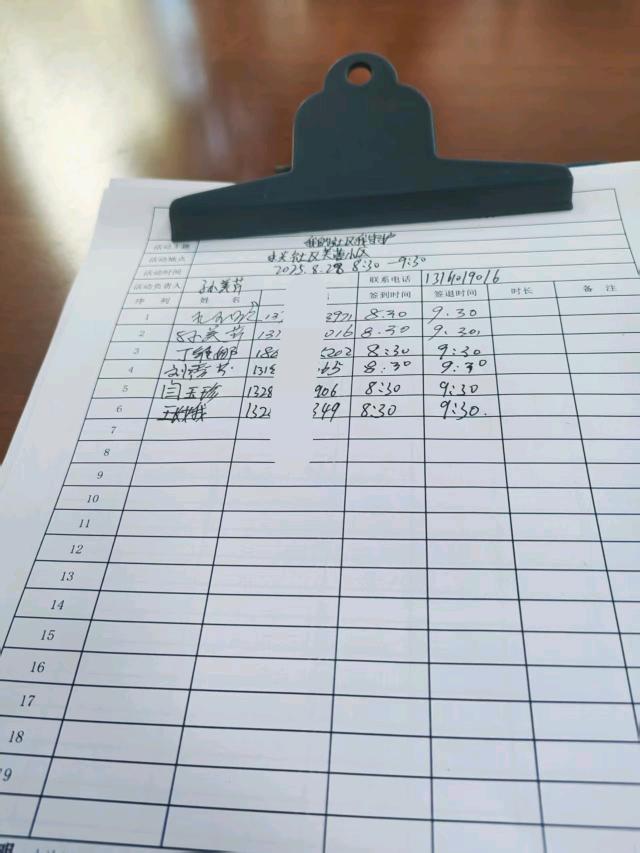 活动主题 我的社区我守护
活动地点 社区芙蓉小区
活动时间 2025.8.28 8:30-9:30
活动负责人 孙美芳 联系电话 1314019016
序列 姓名 签到时间 签退时间 时长 备注
1 8.30 9.30
2 孙美芳 016 8.30 9.30
3 丁 5202 8:30 9:30
4 刘 65 8:30 9.30
5 闫玉珍 1328 906 8:30 9:30
6 王 132 349 8:30 9:30.
7
8
9
10
11
12
13
14
15
16
17
18